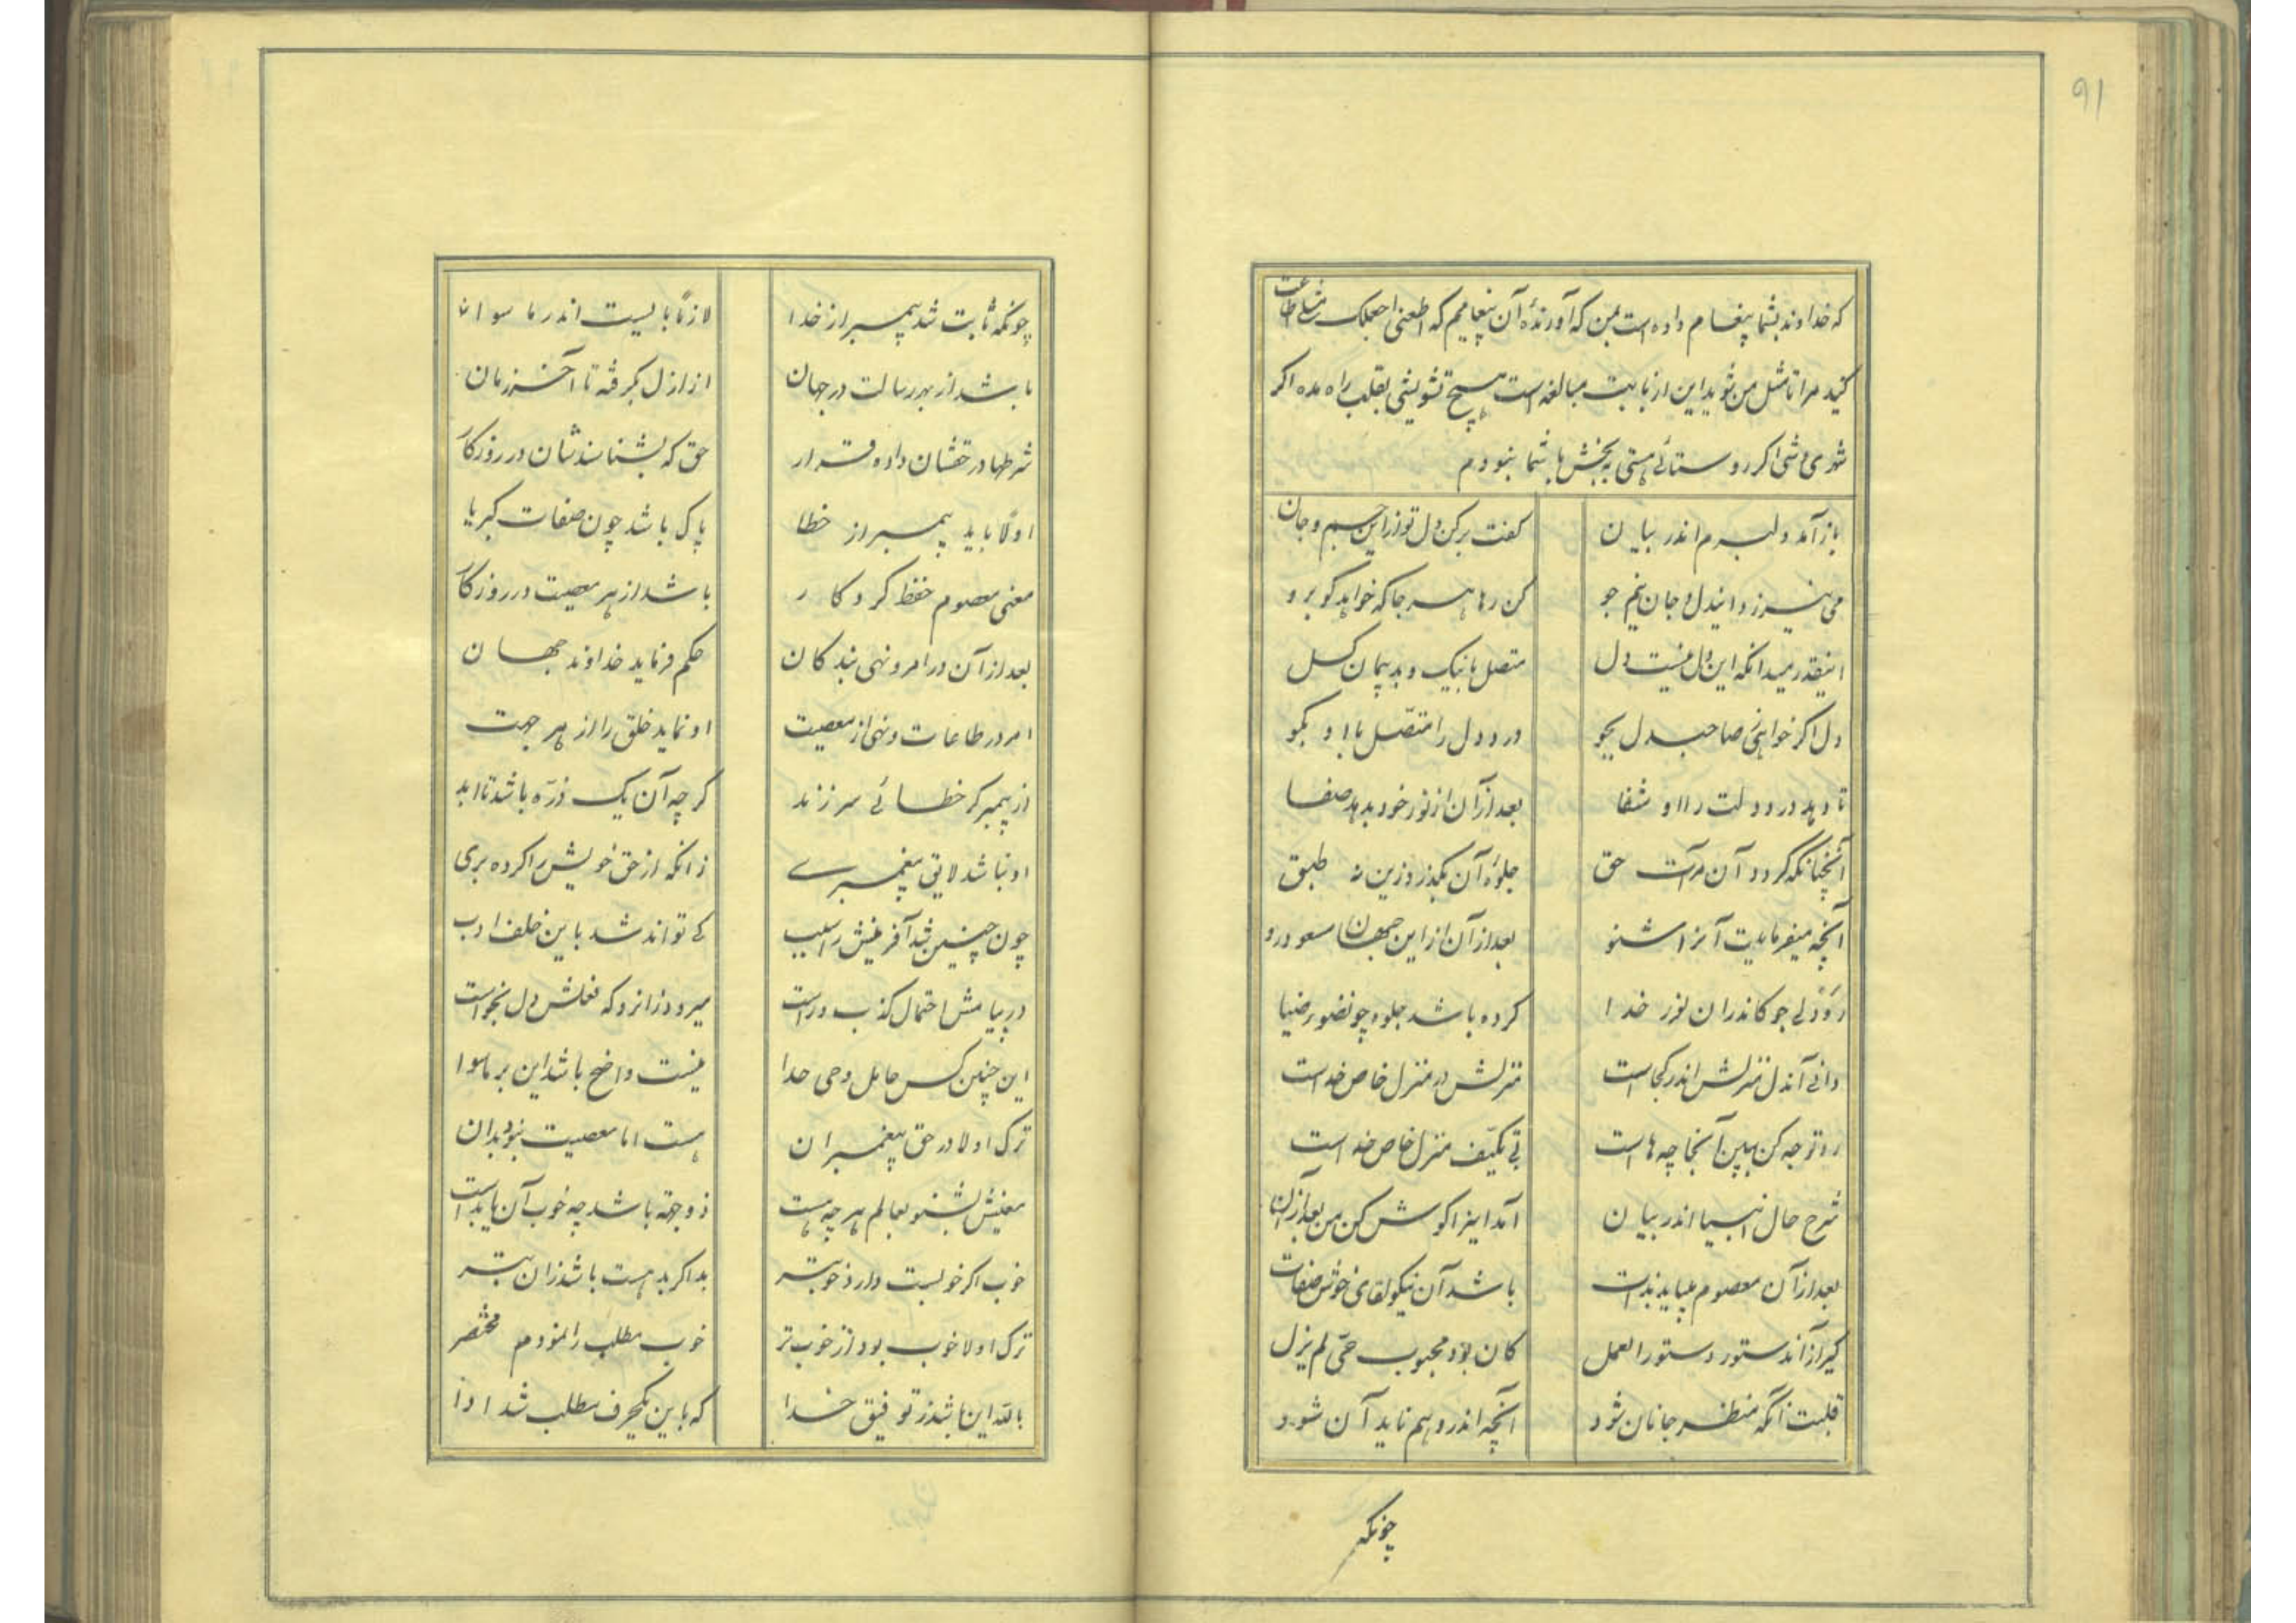 ۹۱
که خداوند بشما پیغام داده است بمن که آورندهٔ آن پیغامم که اطعنی اجعلک مثلی اطاعت
کنید مرا تا مثل من شوید این از بابت مبالغه است هیچ تشویشی بقلب راه مده اگر
شهری وشی اگر روستائی هستی به بخش با شما نبودم
باز آمد دلبرم اندر بیان	گفت برکن دل تو از این جسم و جان
می نیرزد ایندل و جان نیم جو	کن رها هر جا که خواهد گو برو
اینقدر میدانکه این دل نیست دل	متصل با نیک و بد پیمان گسل
دل اگر خواهی صاحبدل بجو	درد دل را متصل با او بگو
تا دهد درد دلت را او شفا	بعد از آن از نور خود بدهد صفا
آنچنانکه گردد آن مرآت حق	جلوهٔ آن بگذرد زین نه طبق
آنچه میفرمایدت آنرا شنو	بعد از آن از این جهان مسعود رو
رَو دلی جو کاندران نور خدا	کرده باشد جلوه چونضوء ضیا
دانی آندل منزلش اندر کجاست	منزلش در منزل خاص خداست
رو توجه کن ببین آنجا چه هاست	بی تکیّف منزل خاص خداست
شرح حال انبیا اندر بیان	آمد اینرا گوش کن من بعد از آن
بعد از آن معصوم میباید بذات	باشد آن نیکو لقای خوش صفات
گیر از آندستور دستورالعمل	کان بود محبوب حیّ لم یزل
قلبت آنگه منظر جانان شود	آنچه اندر وهم ناید آن شود
چونکه
چونکه ثابت شد پیمبر از خدا	لازماً بایست اندر ما سوا
باشد از بهر رسالت در جهان	از ازل بگرفته تا آخر زمان
شرطها در حقشان داده قرار	حق که بشناسندشان در روزگار
اولاً باید پیمبر از خطا	پاک باشد چون صفات کبریا
معنی معصوم حفظ کردگار	باشد از هر معصیت در روزگار
بعد از آن در امر و نهی بندگان	حکم فرماید خداوند جهان
امر در طاعات و نهی از معصیت	او نماید خلق را از هر جهت
از پیمبر گر خطائی سر زند	گر چه آن یک ذرّه باشد تا ابد
او نباشد لایق پیغمبری	زانکه از حق خویش را کرده بری
چون چنین شد آفرینش را سبب	کی تواند شد باین خلف ادب
در پیامش احتمال کذب و راست	میرود زانرو که فعلش دل نخواست
این چنین کس حامل وحی خدا	نیست واضح باشد این بر ماسوا
ترک اولا در حق پیغمبران	هست اما معصیت نبود بدان
معنیش بشنو بعالم هر چه هست	ذو جهة باشد چه خوب آن یا بد است
خوب اگر خوبست دارد خوبتر	بد اگر بد هست باشد زان بتر
ترک اولا خوب بود از خوب تر	خوب مطلب را نمودم مختصر
بالله این نا شد ز توفیق خدا	که باین یکحرف مطلب شد ادا